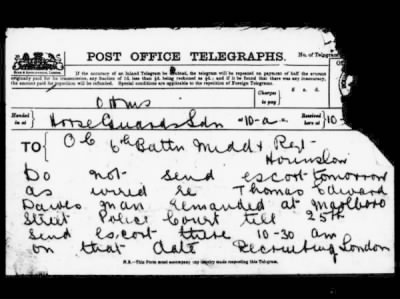 POST OFFICE TELEGRAPHS.
No. of Telegram
If the accuracy of an Inland Telegram be doubted, the telegram will be repeated on payment of half the amount
originally paid for its transmission, any fraction of 1d. less than ½d. being reckoned as ½d.; and if it be found that there was any inaccuracy,
the amount paid for repetition will be refunded. Special conditions are applicable to the repetition of Foreign Telegrams.
Charges to pay
s. d.
OHMS
Handed in at
Horse Guards Ldn 10-a
Received here at
10-
TO
OC 6th Battn Middx Regt
Hounslow
Do not send escort tomorrow
as wired re Thomas Edward
Dawes man remanded at Marlboro
Street Police Court till 25th
send escort there 10-30 am
on that date Recruiting London
N.B.—This Form must accompany any inquiry made respecting this Telegram.